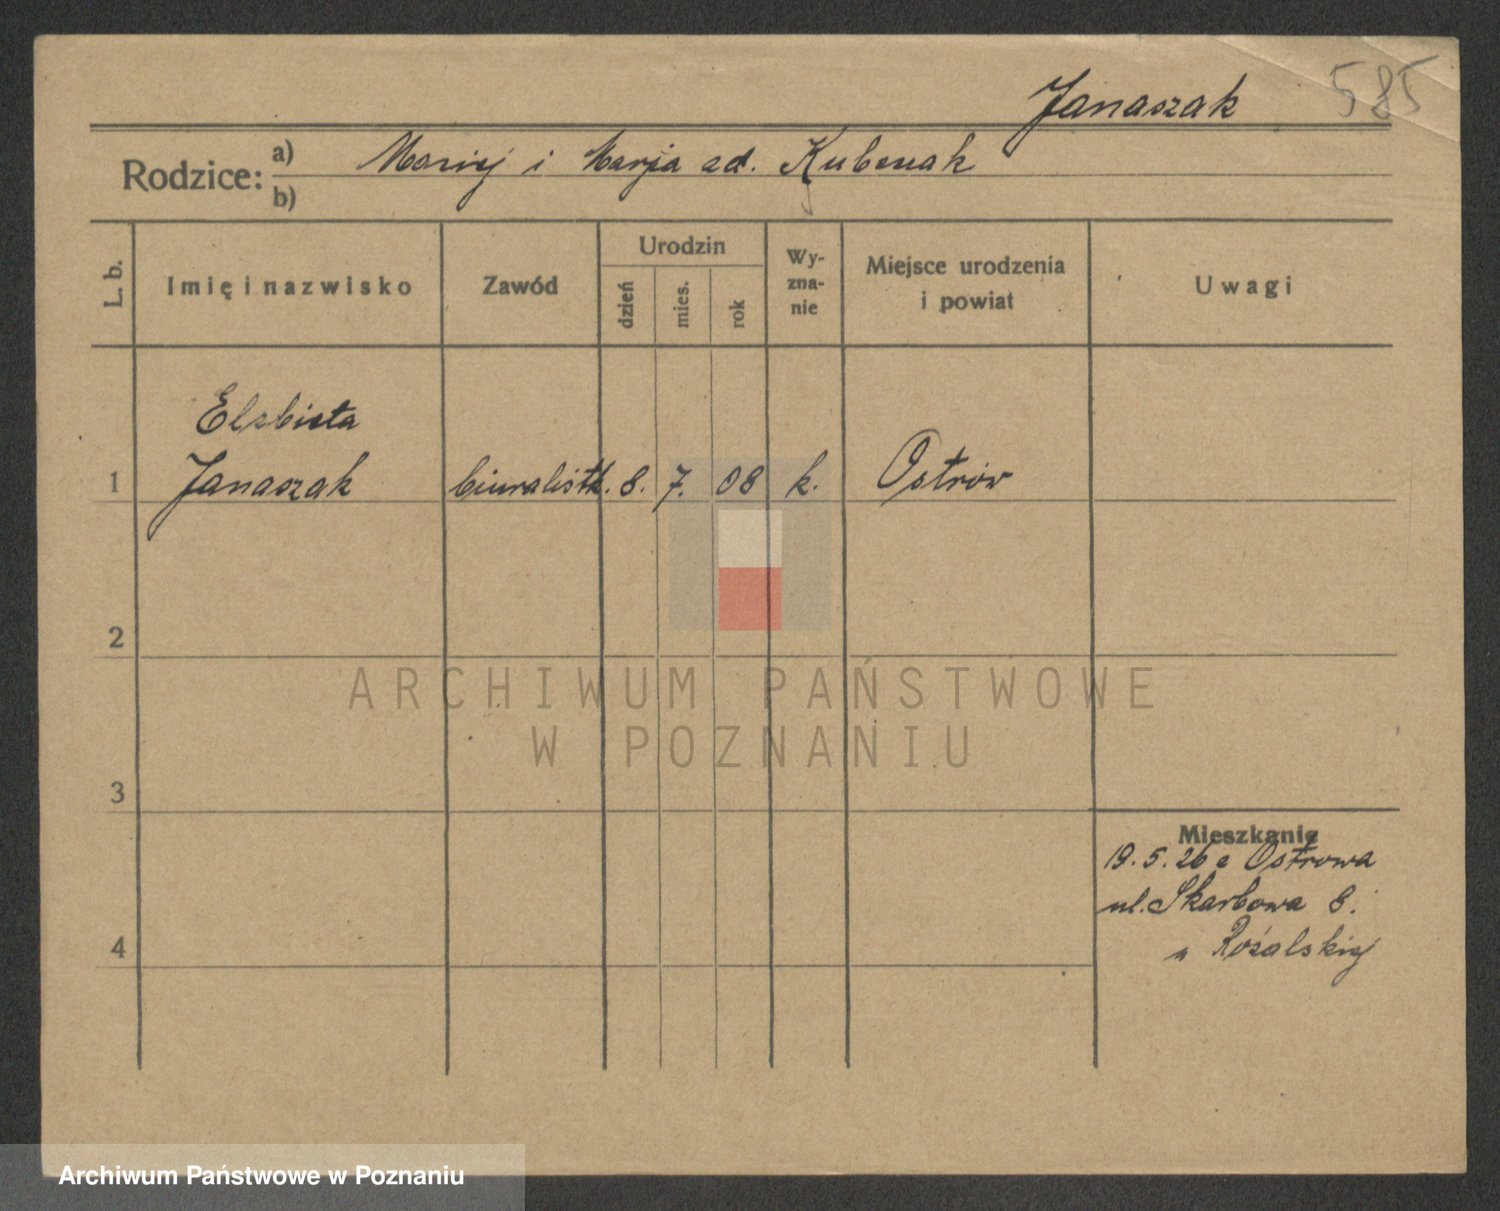 Janaszak 585
Rodzice: a) Maciej i Marja ad. Kubenak
b)
L. b.
Imię i nazwisko
Zawód
Urodzin
dzień
mies.
rok
Wy-
zna-
nie
Miejsce urodzenia
i powiat
Uwagi
Elzbieta
1 Janaszak biuralistk. 8. 7. 08 k. Ostrów
2
ARCHIWUM PAŃSTWOWE
W POZNANIU
3
Mieszkanie
19. 5. 26 z Ostrowa
ul. Skarbowa 8.
4 u Rożalskiej
Archiwum Państwowe w Poznaniu